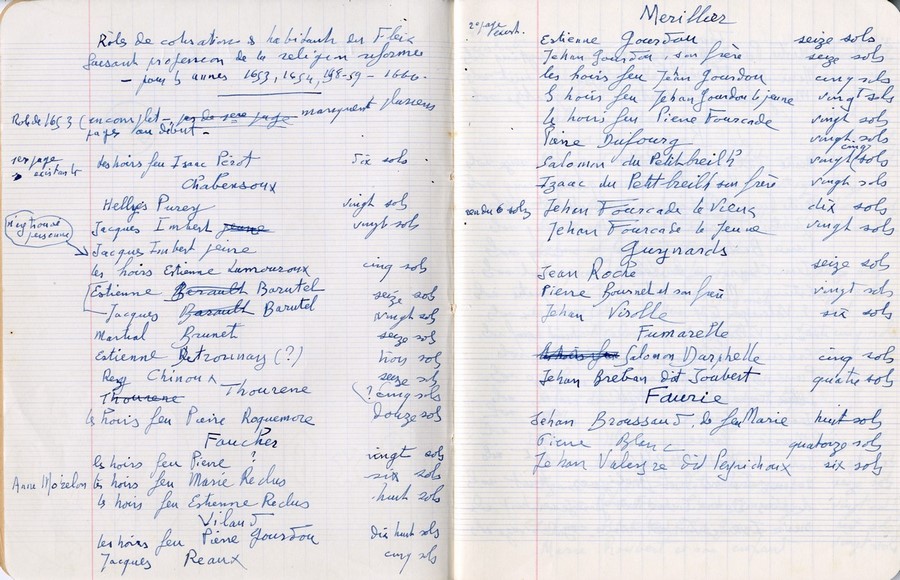 Rôles de cotisations des habitants du Fleix
faisant profession de la religion reformée
– pour les années 1653, 1654, 1658-59 – 1660.
Role de 1653 (incomplet – pas de 1ere page manquent plusieurs
pages au début –
1ere page existante
les hoirs feu Isaac Pérot six sols
Chabensoux
Hellyes Purey vingt sols
Jacques Imbert jeune vingt sols
Jacques Imbert jeune
les hoirs Estienne Lamouroux cinq sols
Estienne Barutel seize sols
Jacques Barutel vingt sols
Martial Brunet seize sols
Estienne (?) trois sols
Rey Chinoux seize sols
Thourene Thourene (? cinq sols
les hoirs feu Pierre Roquemore douze sols
Faucher
les hoirs feu Pierre ? vingt sols
Anne Mozelon les hoirs feu Marie Reclus six sols
les hoirs feu Estienne Reclus huit sols
Vilaud
les hoirs feu Pierre Gourdou dix huit sols
Jacques Reaux cinq sols
2e page
Merillier
Estienne Gourdou seize sols
Jehan Gourdou, son frère seize sols
les hoirs feu Jean Gourdou cinq sols
les hoirs feu Jehan Gourdou le jeune vingt sols
les hoirs feu Pierre Fourcade vingt sols
Pierre Dufourg vingt sols
Salomon du Petitbreilh vingt cinq sols
Izaac du Petitbreilh son frère vingt sols
rendu 6 sols Jehan Fourcade le vieux dix sols
Jehan Fourcade le jeune vingt sols
Guynards
Jean Roche seize sols
Pierre Bournet et son frère vingt sols
Jehan Virolle six sols
Fumarelle
les hoirs feu Salomon Darphelle cinq sols
Jehan Breban dit Joubert quatre sols
Faurie
Jehan Broussaud, de feu Marie huit sols
Pierre Blanc quatorze sols
Jehan Valeyre dit Peyrichoux six sols